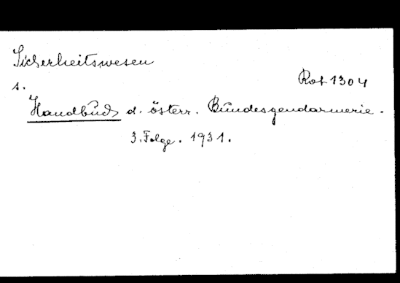 Sicherheitswesen
Rof 1304
s.
Handbuch d. österr. Bundesgendarmerie.
3. Folge. 1931.